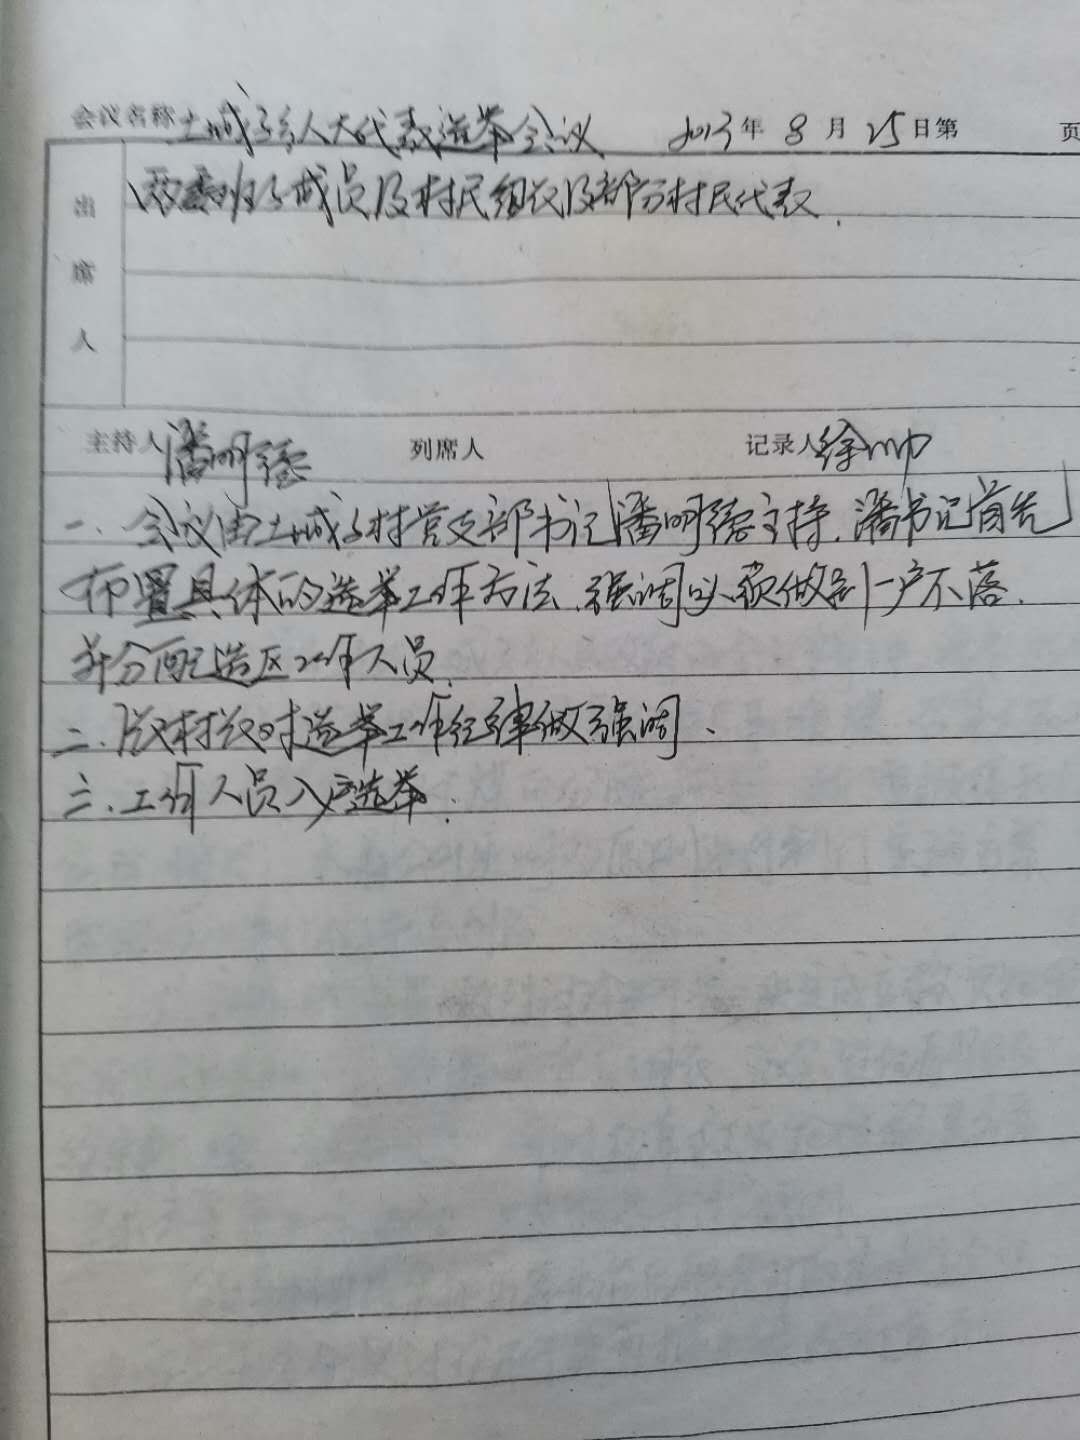 会议名称 土城子乡人大代表选举会议 2013年8月25日第 页
出席人 两委班子成员及村民组长及部分村民代表.
主持人 潘明德 列席人 记录人 徐帅
一、会议由土城子村党支部书记潘明德主持.潘书记首先
布置具体的选举工作方法.强调必须做到一户不落.
并分配选区工作人员.
二、段村长对选举工作纪律做强调.
三、工作人员入户选举.